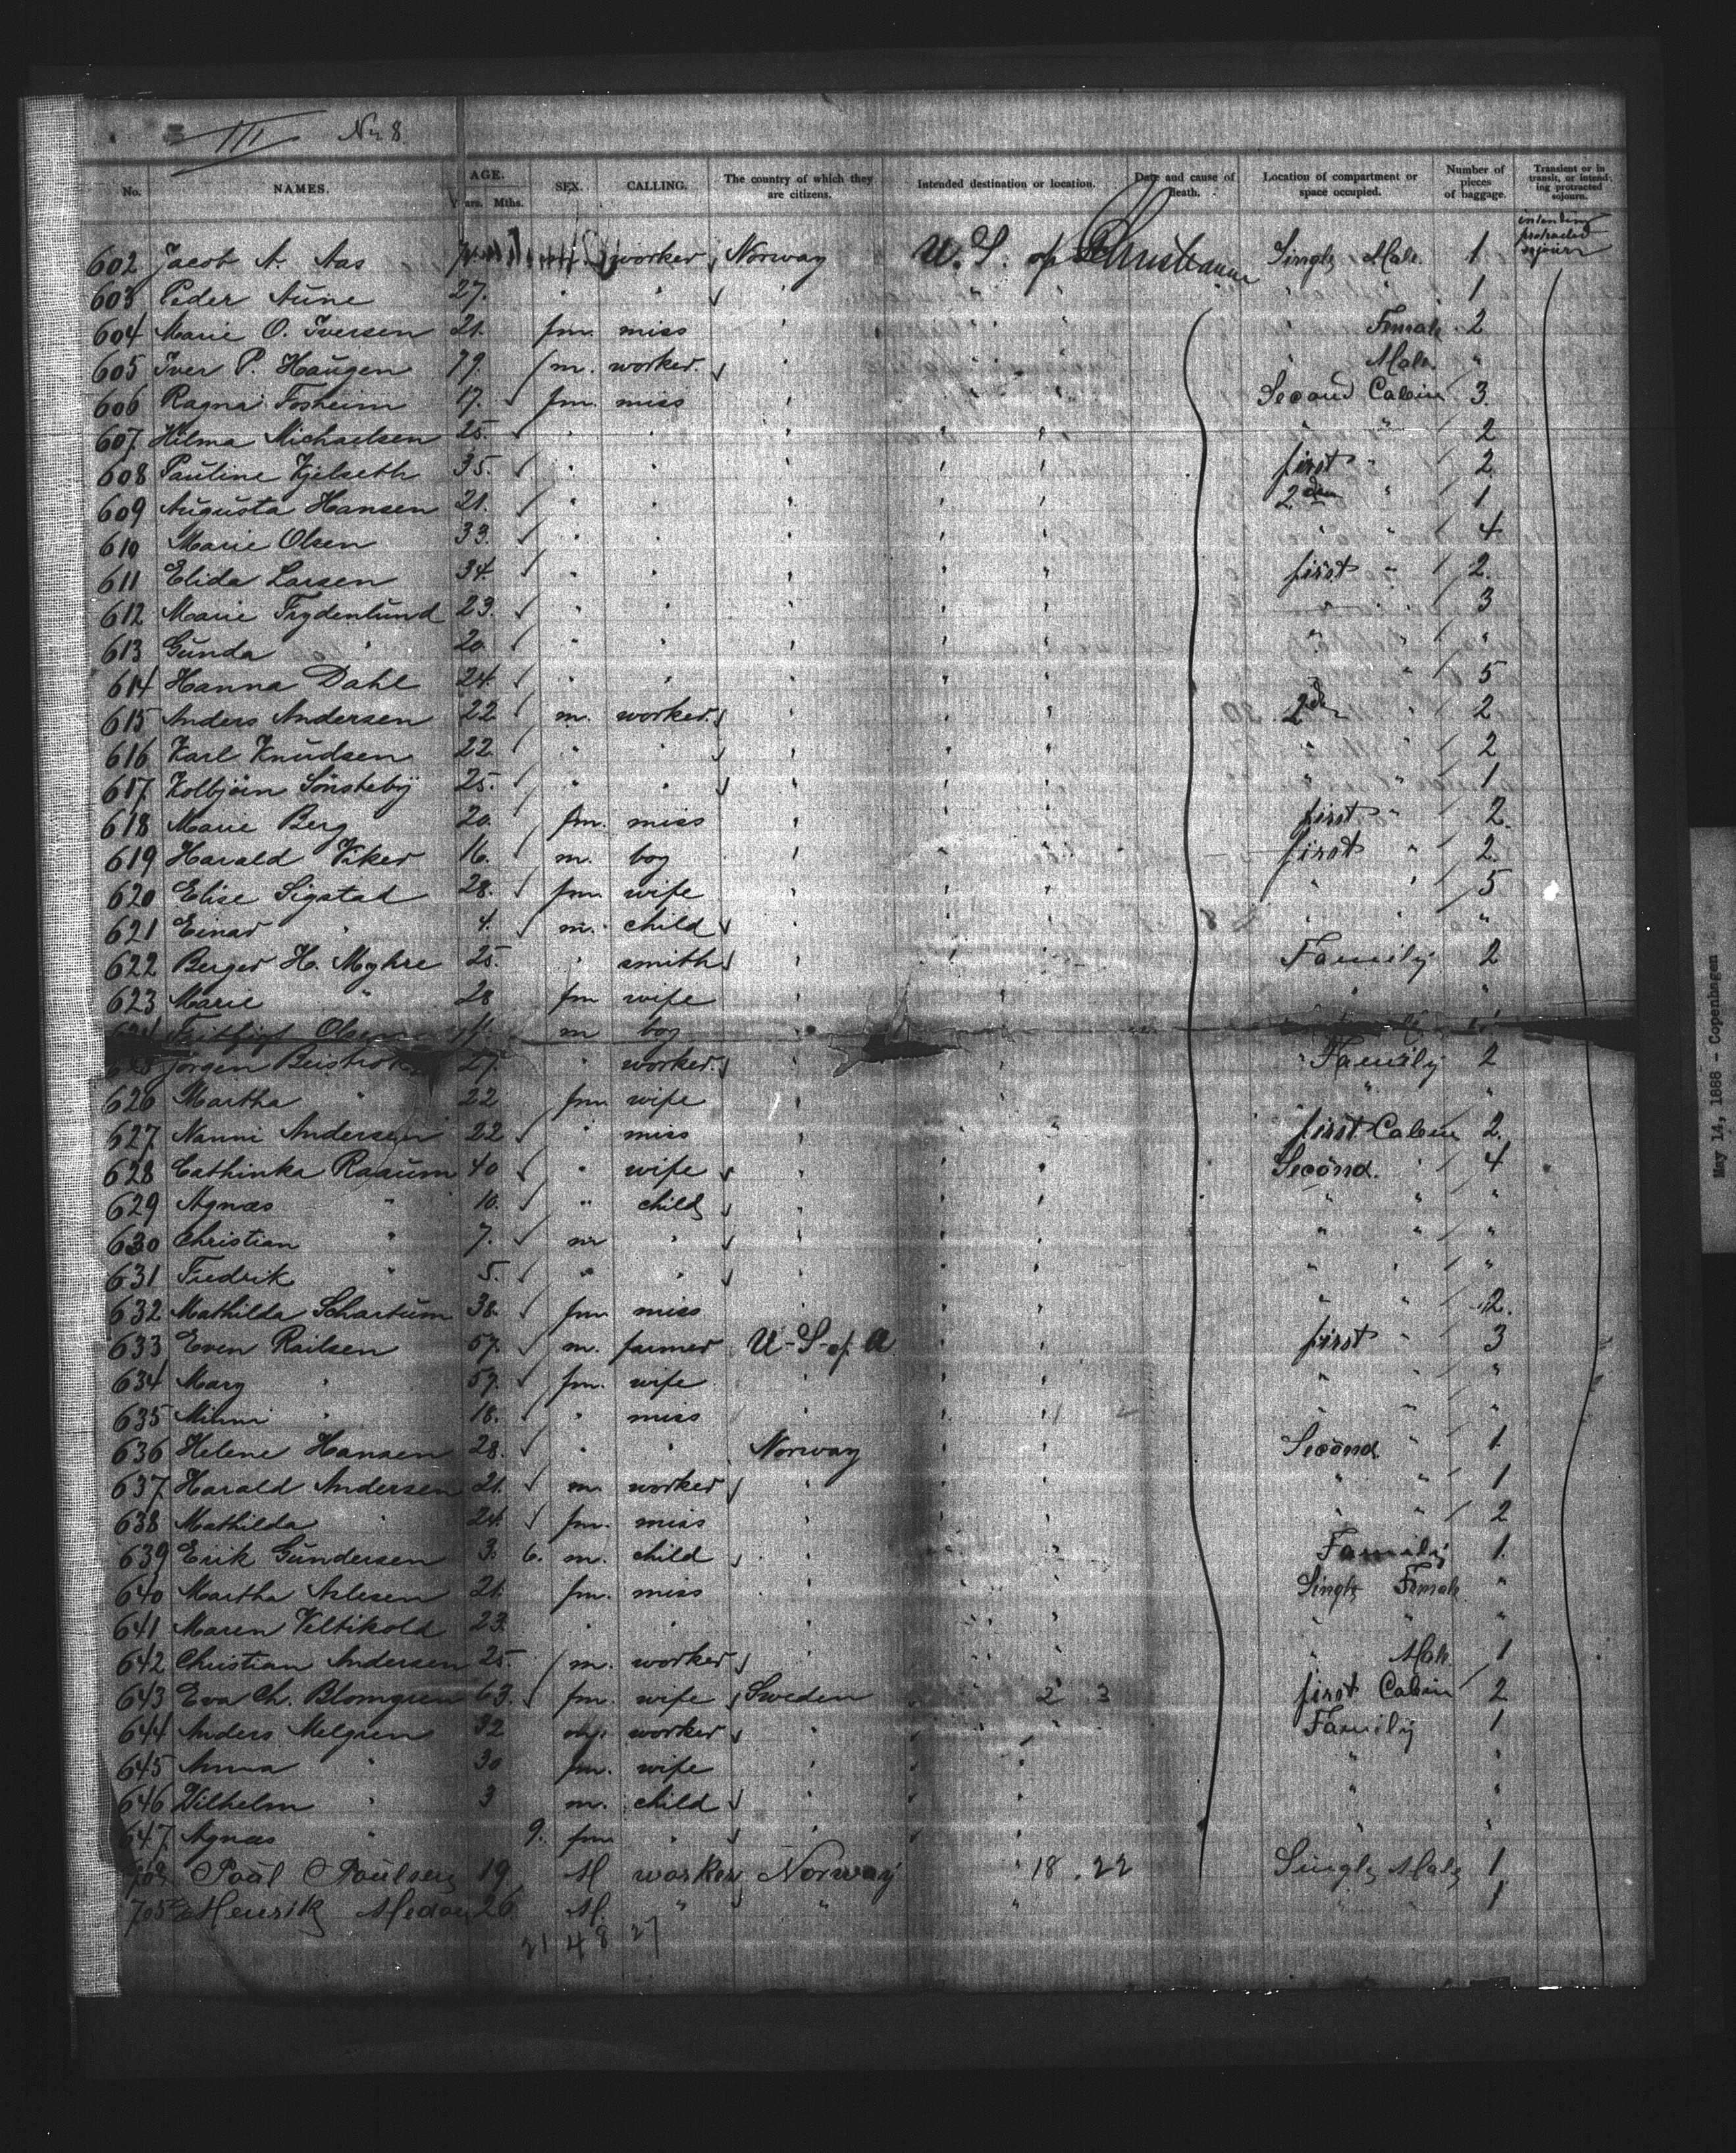 III Nr 8
No. NAMES. AGE. Years. Mths. SEX. CALLING. The country of which they are citizens. Intended destination or location. Date and cause of death. Location of compartment or space occupied. Number of pieces of baggage. Transient or in transit, or intending protracted sojourn.
602 Jacob A. Aas worker Norway U.S. of Single Male 1 intending protracted sojourn
603 Peder Aune 27. " " " " " " 1
604 Marie O. Iversen 21. fm. miss " " " " Female 2
605 Iver P. Haugen 19. m. worker. " " " " Male "
606 Ragna Fosheim 17. fm. miss " " " Second Cabin 3.
607 Hilma Michaelsen 25. " " " " " " " 2
608 Pauline Kjelseth 35. " " " " " first " 2
609 Augusta Hansen 21. " " " " " 2den " 1
610 Marie Olsen 33. " " " " " " " 4
611 Elida Larsen 34. " " " " " first " 2.
612 Marie Frydenlund 23. " " " " " " " 3
613 Gunda " 20. " " " " " " " "
614 Hanna Dahl 24. " " " " " " 5
615 Anders Andersen 22 m. worker. " " " 2den " 2
616 Karl Knudsen 22. " " " " " " " 2
617 Kolbjörn Sönsteby 25. " " " " " " " 1
618 Marie Berg 20. fm. miss " " " first " 2.
619 Harald Viker 16. m. boy " " " first " 2.
620 Elise Sigstad 28. fm. wife " " " " " 5
621 Einar " 4. m. child " " " " " "
622 Berger H. Myhre 25. " smith " " " Family 2
623 Marie " 28 fm wife " " " "
Olsen m boy
Jörgen 27. " worker. " " Family 2
626 Martha " 22 fm. wife " " " "
627 Nanni Andersen 22 " miss " " " first Cabin 2.
628 Cathinka Raaum 40 " wife " " " Second. " 4
629 Agnæs " 10. " child " " " " " "
630 Christian " 7. m " " " " " " "
631 Fredrik " 5. " " " " " " " "
632 Mathilda Schartum 38. fm. miss " " " " " 2.
633 Even Railsen 57. m. farmer U-S-of A. " " first " 3
634 Mary " 59. fm. wife " " " " " "
635 Minni " 18. " miss " " " " " "
636 Helene Hansen 28. " " Norway " " Second " 1.
637 Harald Andersen 21. m. worker " " " " " 1
638 Mathilda " 24. fm. miss " " " " " 2
639 Erik Gundersen 3. 6. m. child " " " Family 1.
640 Martha Aslesen 21. fm. miss " " " Single Female "
641 Maren Veltikold 23. " " " " " " " "
642 Christian Andersen 25. m. worker " " " " Male 1
643 Eva Ch. Blomgren 63. fm. wife Sweden " 2 3 first Cabin 2
644 Anders Melgren 32 m. worker " " " Family 1
645 Anna " 30 fm. wife " " " " "
646 Vilhelm " 3 m. child " " " " "
647. Agnæs " 9. fm " " " " " "
Paul Paulsen 19 M worker Norway " 18. 22 Single Male 1
Henrik 26. M. " " " " " 1
21 48 27
May 14, 1888 - Copenhagen